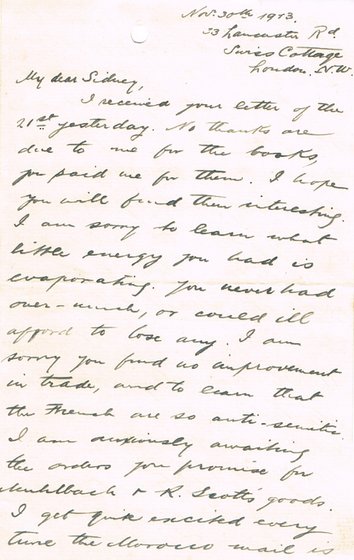 Nov. 30th 1913.
33 Lancaster Rd
Swiss Cottage
London. N.W.
My dear Sidney,
I received your letter of the
21st yesterday. No thanks are
due to me for the books,
you paid me for them. I hope
you will find them interesting.
I am sorry to learn what
little energy you had is
evaporating. You never had
over-much, or could ill
afford to lose any. I am
sorry you find no improvement
in trade, and to learn that
the French are so anti-semitic.
I am anxiously awaiting
the orders you promise for
Muhlbach & R. Scott's goods.
I get quite excited every
time the Morocco mail is